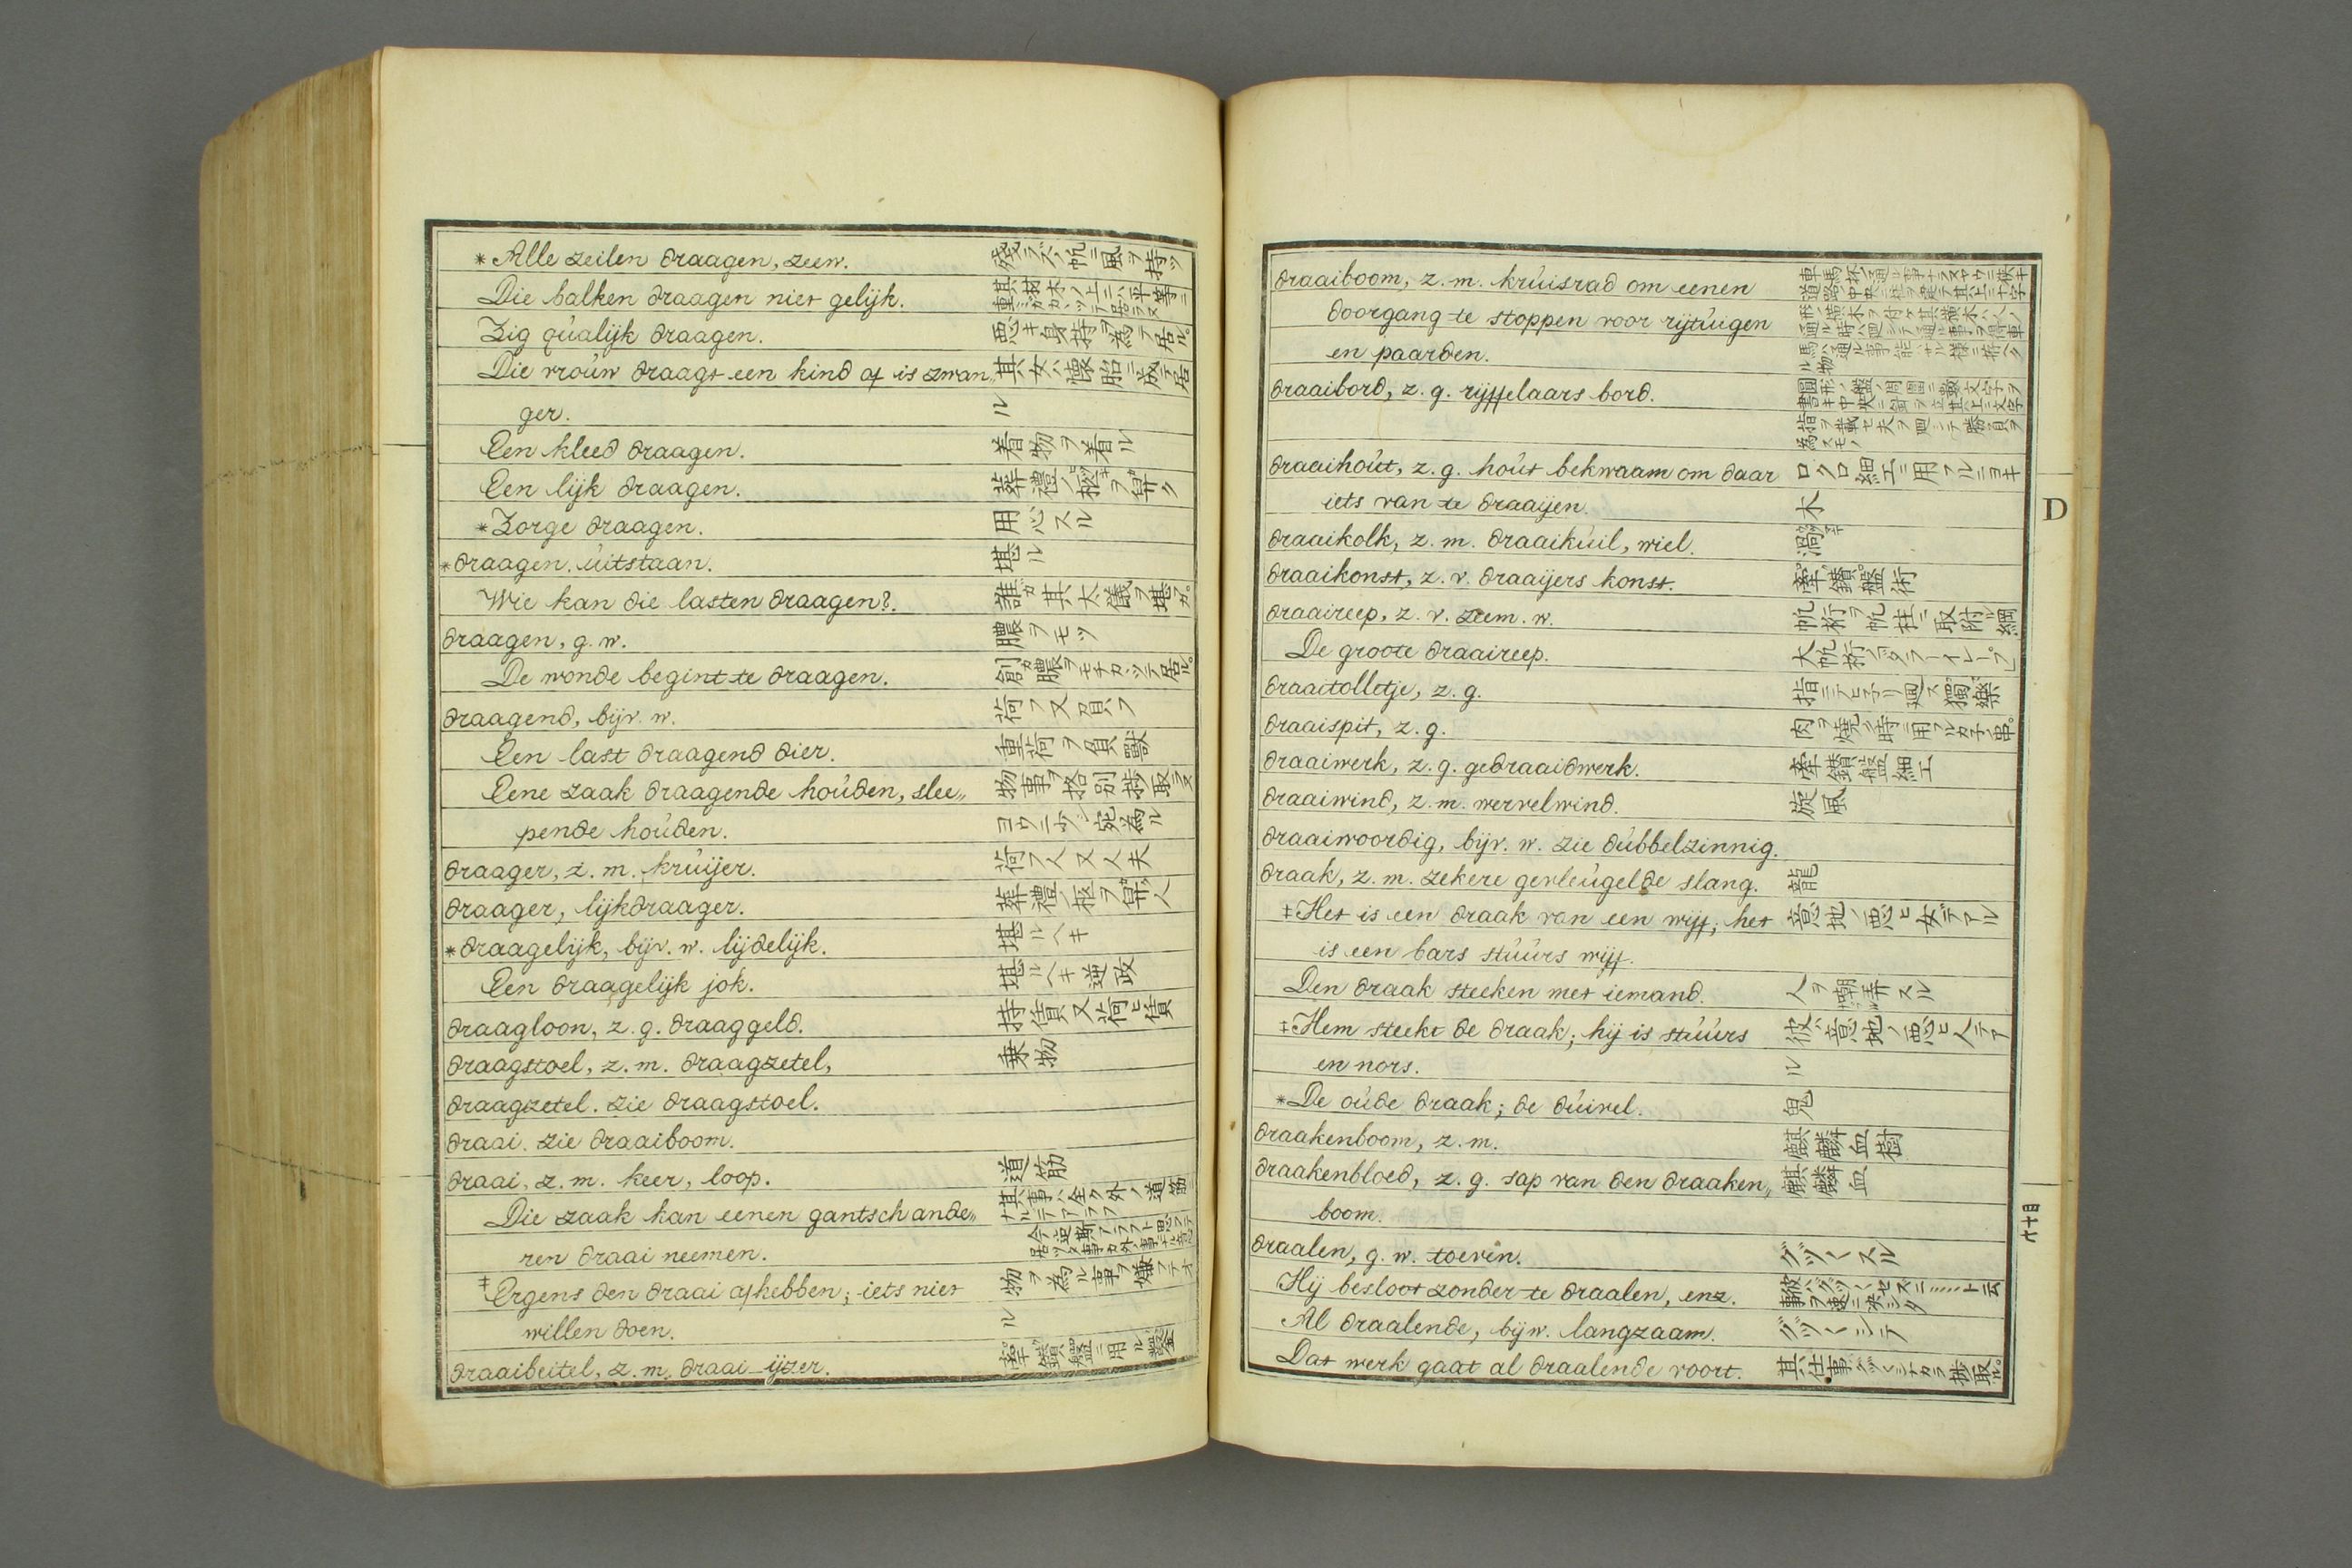 * Alle zeilen draagen, zeew. 殘ラズノ帆ニ風ヲ持ツ
Die balken draagen niet gelijk. 其樹木ノ上ニハ平等ニ重ミガカヽツテ居ラヌ
Zig qúalijk draagen. 悪キ身持ヲ為テ居ル。
Die vroúw draagt een kind of is zwan„ 其女ハ懐胎ニ成テ居
ger. ル
Een kleed draagen. 着物ヲ着ル
Een lijk draagen. 葬禮ノ柩ヲ舁ク
* Zorge draagen. 用心スル
* draagen. úitstaan. 堪ル
Wie kan die lasten draagen?. 誰ガ其大儀ヲ堪フカ。
draagen, g. w. 膿ヲモツ
De wonde begint te draagen. 創ガ膿ヲモチカヽツテ居ル。
draagend, bijv. w. 荷フ又負フ
Een last draagend dier. 重荷ヲ負獸
Eene zaak draagende hoúden, slee„ 物事ヲ格別捗取ラヌ
pende hoúden. ヨウニ少シ宛為ル
draager, z. m. krúijer. 荷フ人又人夫
draager, lijkdraager. 葬禮ノ柩ヲ舁ク人
* draagelijk, bijv. w. lijdelijk. 堪ルヘキ
Een draagelijk jok. 堪ルヘキ逆政
draagloon, z. g. draaggeld. 持賃又荷ヒ賃
draagstoel, z. m. draagzetel, 乗物
draagzetel. zie draagstoel.
draai. zie draaiboom.
draai, z. m. keer, loop. 道筋
Die zaak kan eenen gantsch ande„ 其事ハ全ク外ノ道筋ニナルテアラフ
ren draai neemen.
‡ Ergens den draai af hebben; iets niet 物ヲ為ル事ヲ嫌フテオ
willen doen. ル
draaibeitel, z. m. draai-ijzer. 牽鑚盤ニ用ル鑿
draaiboom, z. m. krúisrad om eenen
doorgang te stoppen voor rijtúigen
en paarden.
draaibord, z. g. rijffelaars bord.
draaihoút, z. g. hoút bekwaam om daar ロクロ細工ニ用フルニヨキ
iets van te draaijen. 木
draaikolk, z. m. draaikúil, wiel. 渦
draaikonst, z. v. draaijers konst. 牽鑚盤術
draaireep, z. v. zeem. w. 帆桁ヲ帆柱ニ取附ル綱
De groote draaireep. 大帆桁ノ「ダラーイレープ」
draaitolletje, z. g. 指ニテヒ子リ廻ス獨樂
draaispit, z. g. 肉ヲ燒ク時ニ用フルカ子ノ串。
draaiwerk, z. g. gedraaidwerk. 牽鑚盤細工
draaiwind, z. m. wervelwind. 旋風
draaiwoordig, bijv. w. zie dúbbelzinnig.
draak, z. m. zekere gevleúgelde slang. 龍
‡ Het is een draak van een wijf; het 意地ノ悪ヒ女デアル
is een bars stúúrs wijf.
Den draak steeken met iemand. 人ヲ嘲弄スル
‡ Hem steekt de draak; hij is stúúrs 彼ハ意地ノ悪ヒ人テア
en nors. ル
* De oúde draak; de dúivel. 鬼
draakenboom, z. m. 麒麟血樹
draakenbloed, z. g. sap van den draaken„ 麒麟血
boom.
draalen, g. w. toevin. グヅ〱スル
Hij besloot zonder te draalen, enz. 彼ハグヅ〱セズニ……ト云事ヲ速ニ决シタ
Al draalende, bijw. langzaam. グヅ〱シテ
Dat werk gaat al draalende voort. 其仕事ハグヅ〱シナカラ捗取ル。
D